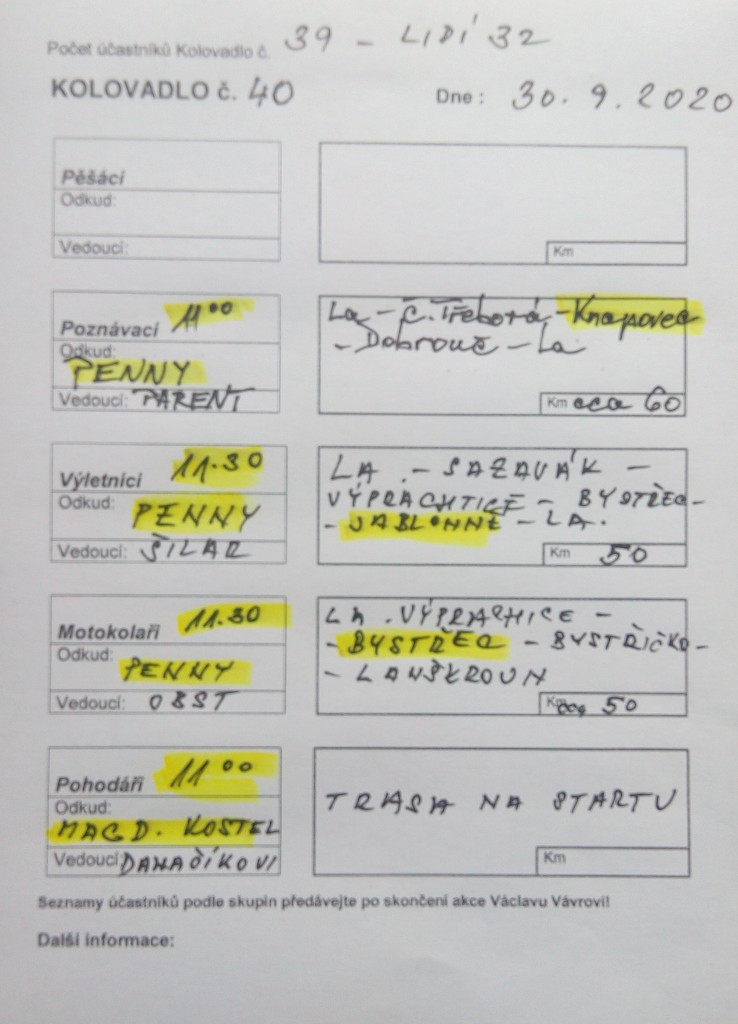 Počet účastníků Kolovadlo č. 39 - LIDÍ 32
KOLOVADLO č. 40 Dne : 30. 9. 2020
Pěšáci
Odkud:
Vedoucí:
Km
Poznávací 11 00
Odkud:
PENNY
Vedoucí: PARENT
La - Č. Třebová - Knapovec
- Dobrouč - La
Km cca 60
Výletníci 11.30
Odkud:
PENNY
Vedoucí: ŠILAR
LA - SAZAVÁK -
VÝPRACHTICE - BYSTŘEC -
- JABLONNÉ - LA.
Km 50
Motokolaři 11.30
Odkud:
PENNY
Vedoucí: OBST
LA . VÝPRACHICE -
- BYSTŘEC - BYSTŘIČKO -
- LANŠKROUN
Km cca 50
Pohodáři 11 00
Odkud:
MAGD. KOSTEL
Vedoucí:
TRASA NA STARTU
Km
Seznamy účastníků podle skupin předávejte po skončení akce Václavu Vávrovi!
Další informace: